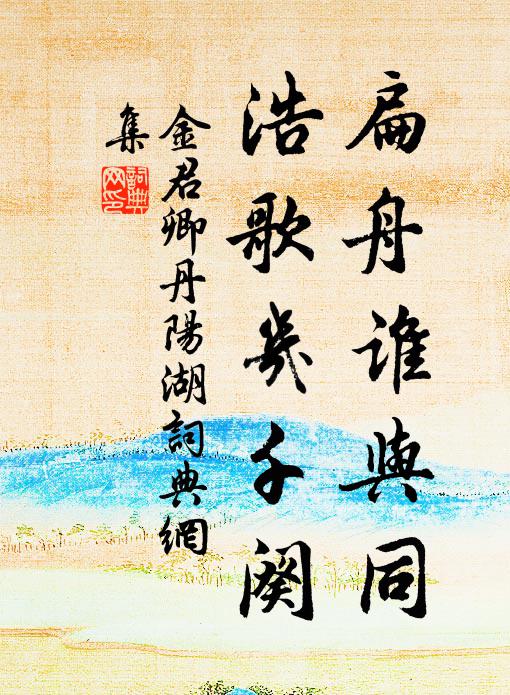 扁舟誰與同
浩歌幾千闋
金君卿丹陽湖詞典網
集
詞典
網印